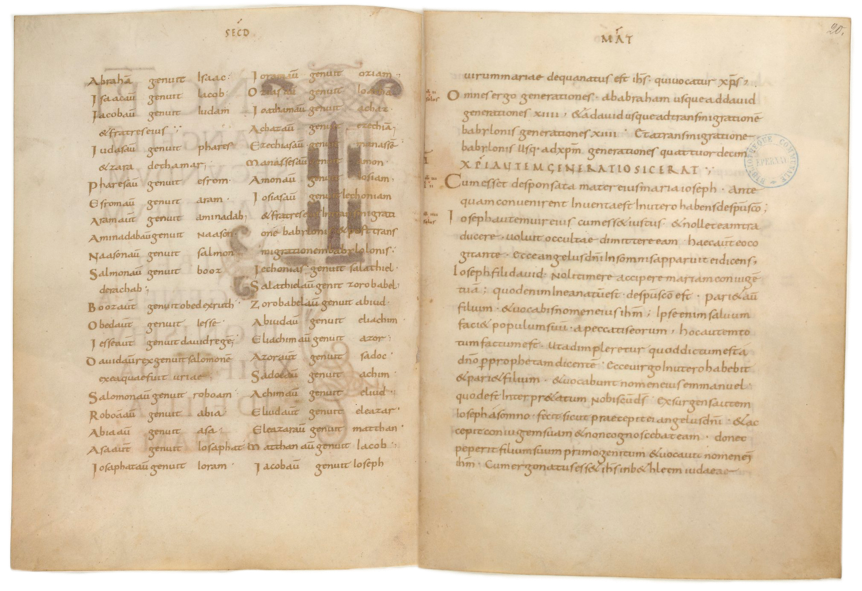 SECD
Abrahā genuit Isaac·
Isaacaū genuit Iacob
Iacobaū genuit Iudam
&fratreseius
Iudasaū genuit phares
&zara dethamar;
Pharesaū genuit esrom·
Esromaū genuit aram·
Aramaū genuit aminadab·
Aminadabaū genuit Naason·
Naasonaū genuit salmon
Salmonaū genuit booz
derachab;
Boozaūt genuit obed exruth·
Obedaūt genuit Iesse
Iesseaūt genuit dauidregē;
Dauidaūt rex genuit salomonē
exeaquaefuit uriae·
Salomonaū genuit roboam
Roboāaū genuit abia·
Abiaaū genuit asa·
Asaaūt genuit Iosaphat
Iosaphataū genuit Ioram·
Ioramaū genuit oziam·
Oziasaū genuit Ioathā·
Ioathamaū genuit achaz·
Achazaū genuit ezechiā;
Ezechiasaū genuit manassen
manassesaū genuit amon·
Amonaū genuit Iosiam·
Iosiasaū genuit Iechoniam
&fratres
one babylonis &post trans
migrationembabylonis:
Iechonias genuit salathiel·
Salathielaū genuit zorobabel
Zorobabelaū genuit abiud·
Abiudaū genuit eliachim·
Eliachimaū genuit azor·
Azoraūt genuit sadoc·
Sadocaū genuit achim·
Achimaū genuit eliud·
Eliudaūt genuit eleazar·
Eleazaraū genuit matthan·
Matthanaū genuit Iacob·
Iacobaū genuit Ioseph
MAT
20.
uirummariae dequanatus est ihs· quiuocatur xps;
Omnesergo generationes· ababraham usqueaddauid
generationes xiiii· &adauid usqueadtransmigratione
babylonis generationes xiiii· Etatransmigratione
babylonis usq; adxpm· generationes quattuordecim
XPI AUTEM GENERATIO SIC ERAT;
Cumesset desponsata mater eius maria ioseph· Ante
quam conuenirent Inuentaest Inutero habens despūsco;
Ioseph autem uir eius cumess& iustus &nollet eamtra
ducere· uoluit occultae dimittere eam· Haecaūt eoco
gitante· Ecce angelus dni Insomnis apparuit ei dicens·
Ioseph fili dauid· Noli timere accipere mariam coniugē
tuā: quodenim Inea natū est· despūsco est· pari& aū
filium· &uocabis nomen eius ihm; Ipse enim saluum
faci& populum suū· apeccatis eorum· Hocautem to
tum factum est· utadimpleretur quoddictum esta
dno per prophetam dicentē· Ecce uirgo Inutero habebit
&pari& filium· &uocabunt nomen eius emmanuel·
quodest Interpr&atum Nobiscum ds· Exsurgens autem
Ioseph asomno· fecit sicut praecepit ei angelus dni· &ac
cepit coniugem suam &non cognoscebat eam· donec
peperit filium suum primogenitum &uocauit nomen ei
ihm· Cumergo natus ess& ihs inb&hleem iudaeae